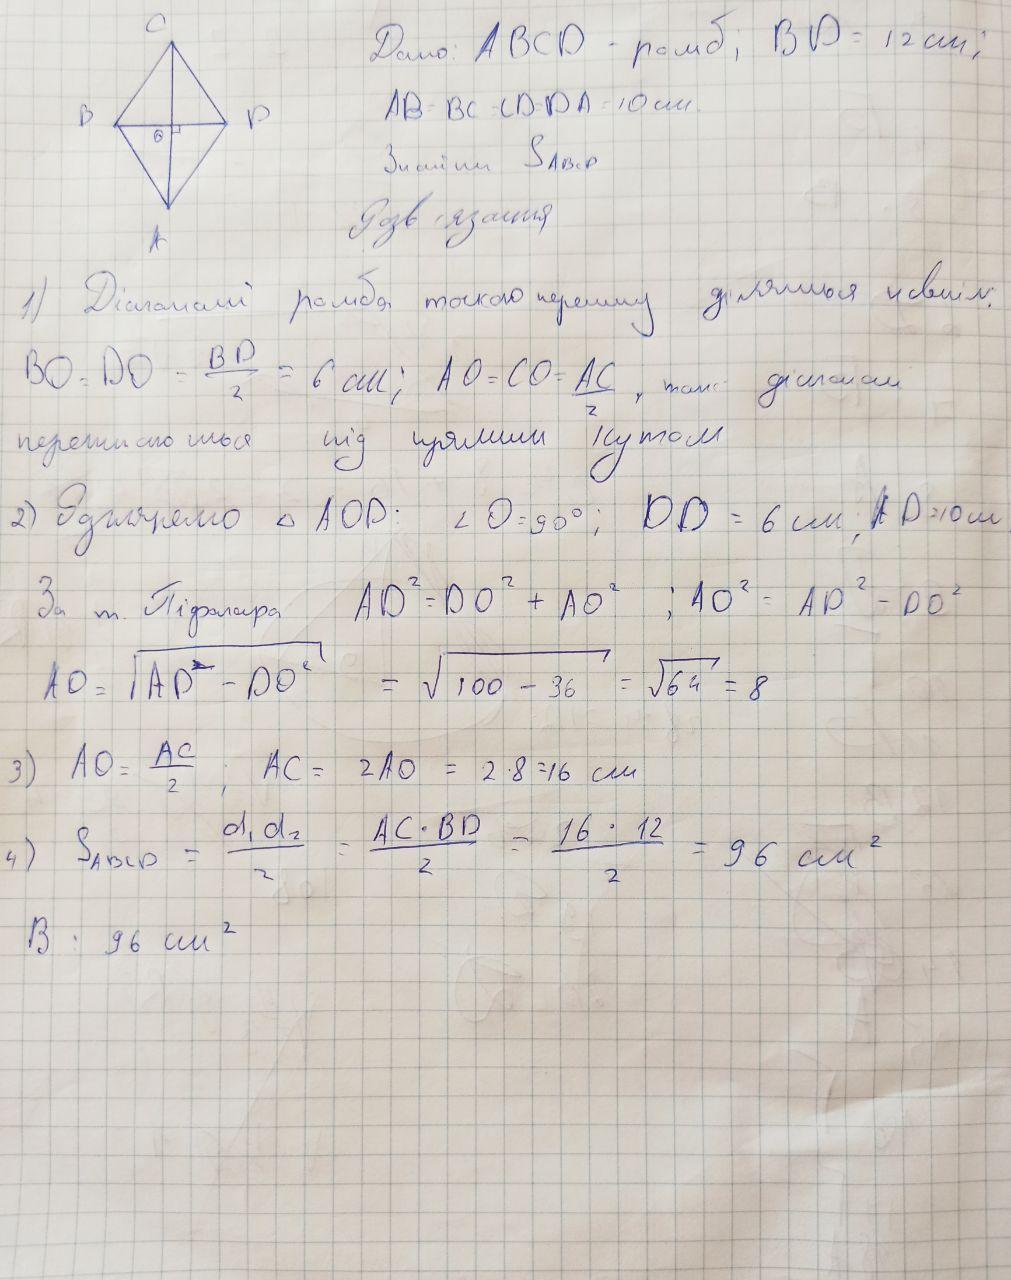 C
B
D
O
A
Дано: ABCD - ромб; BD = 12 см;
AB = BC = CD = DA = 10 см.
Знайти S ABCD
Розв'язання
1) Діагоналі ромба точкою перетину діляться навпіл.
BO = DO = BD/2 = 6 см; AO = CO = AC/2, також діагоналі
перетинаються під прямим кутом
2) Розглянемо △ AOD: ∠ O = 90°; DO = 6 см; AD = 10 см
За т. Піфагора AD² = DO² + AO²; AO² = AD² - DO²
AO = √(AD² - DO²) = √(100 - 36) = √64 = 8
3) AO = AC/2; AC = 2AO = 2·8 = 16 см
4) S ABCD = d₁d₂/2 = AC·BD/2 = 16·12/2 = 96 см²
В: 96 см²